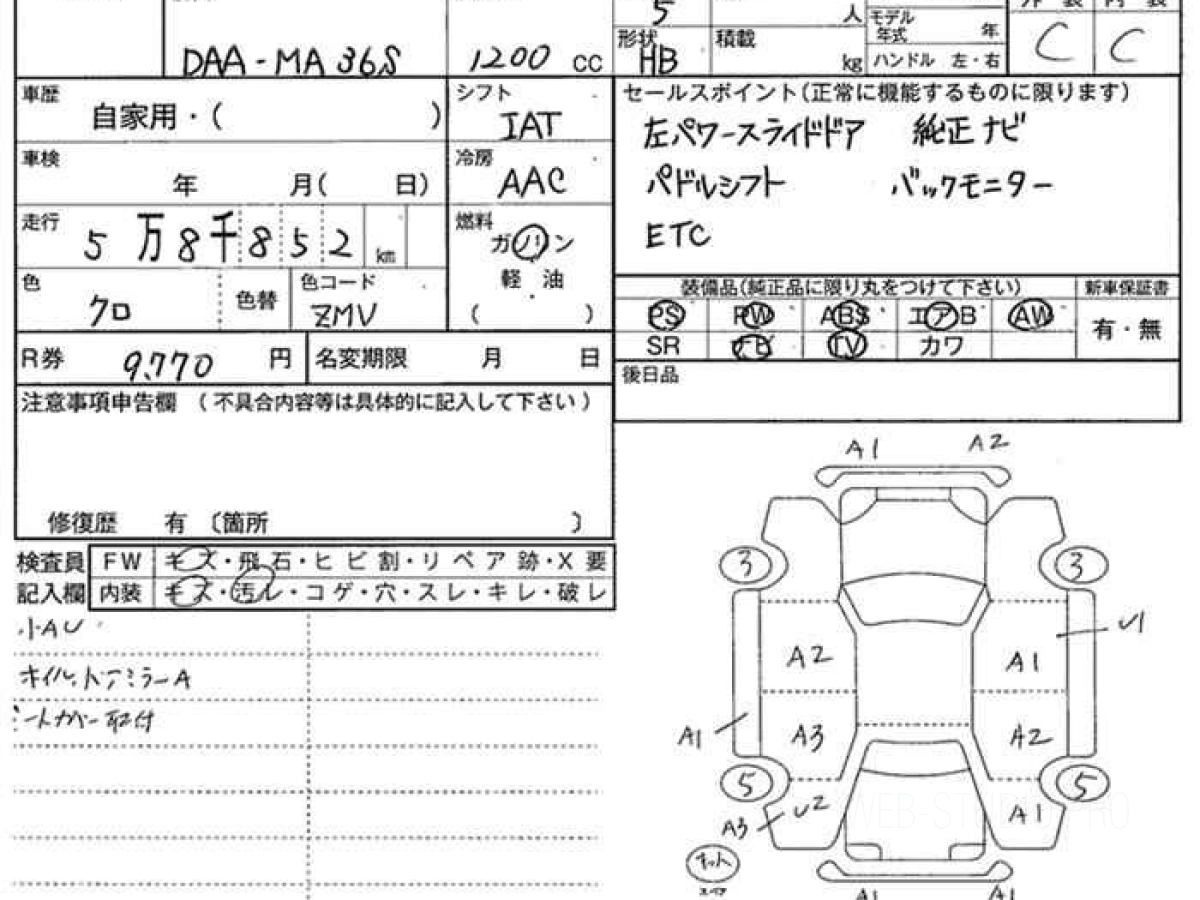 5 人
モデル年式 年
外装 内装
C C
DAA-MA36S
1200 cc
形状 HB
積載 kg
ハンドル 左・右
車歴 自家用・( )
シフト IAT
セールスポイント(正常に機能するものに限ります)
左パワースライドドア 純正ナビ
パドルシフト バックモニター
ETC
車検 年 月( 日)
冷房 AAC
走行 5万8千852 km
燃料 ガソリン
軽油
( )
色 クロ
色替
色コード ZMV
装備品(純正品に限り丸をつけて下さい)
新車保証書
PS PW ABS エアB AW
有・無
SR ナビ TV カワ
R券 9,770 円
名変期限 月 日
後日品
注意事項申告欄 (不具合内容等は具体的に記入して下さい)
修復歴 有 〔箇所 〕
検査員記入欄
FW キズ・飛石・ヒビ割・リペア跡・X要
内装 キズ・汚レ・コゲ・穴・スレ・キレ・破レ
小AU
ホイル、ドアミラーA
シートカバー取付
A1 A2
3 3
U1
A2 A1
A1
A3 A2
5 5
U2 A1
A3
キット
スペア
A1 A1
WEB-ST